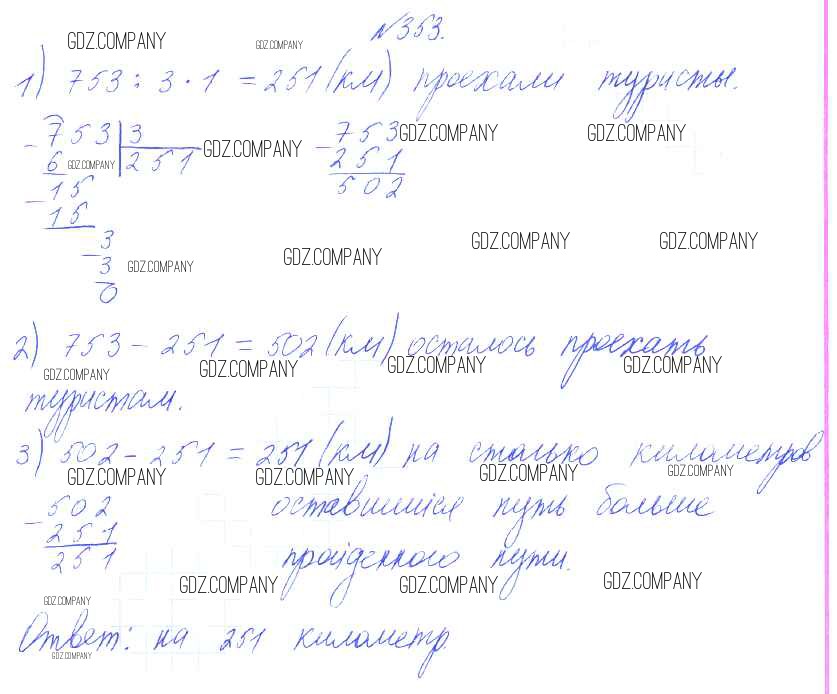 №353.
GDZ.COMPANY GDZ.COMPANY
1) 753 : 3 · 1 = 251 (км) проехали туристы.
- 753 | 3 - 753 GDZ.COMPANY GDZ.COMPANY
6 GDZ.COMPANY 251 GDZ.COMPANY 251
- 15 502
15
- 3 GDZ.COMPANY GDZ.COMPANY GDZ.COMPANY
3 GDZ.COMPANY
0
2) 753 - 251 = 502 (км) осталось проехать
GDZ.COMPANY GDZ.COMPANY GDZ.COMPANY GDZ.COMPANY
туристам.
3) 502 - 251 = 251 (км) на столько километров
GDZ.COMPANY GDZ.COMPANY GDZ.COMPANY GDZ.COMPANY
- 502 оставшийся путь больше
251
251 пройденного пути.
GDZ.COMPANY GDZ.COMPANY GDZ.COMPANY
GDZ.COMPANY
Ответ: на 251 километр.
GDZ.COMPANY